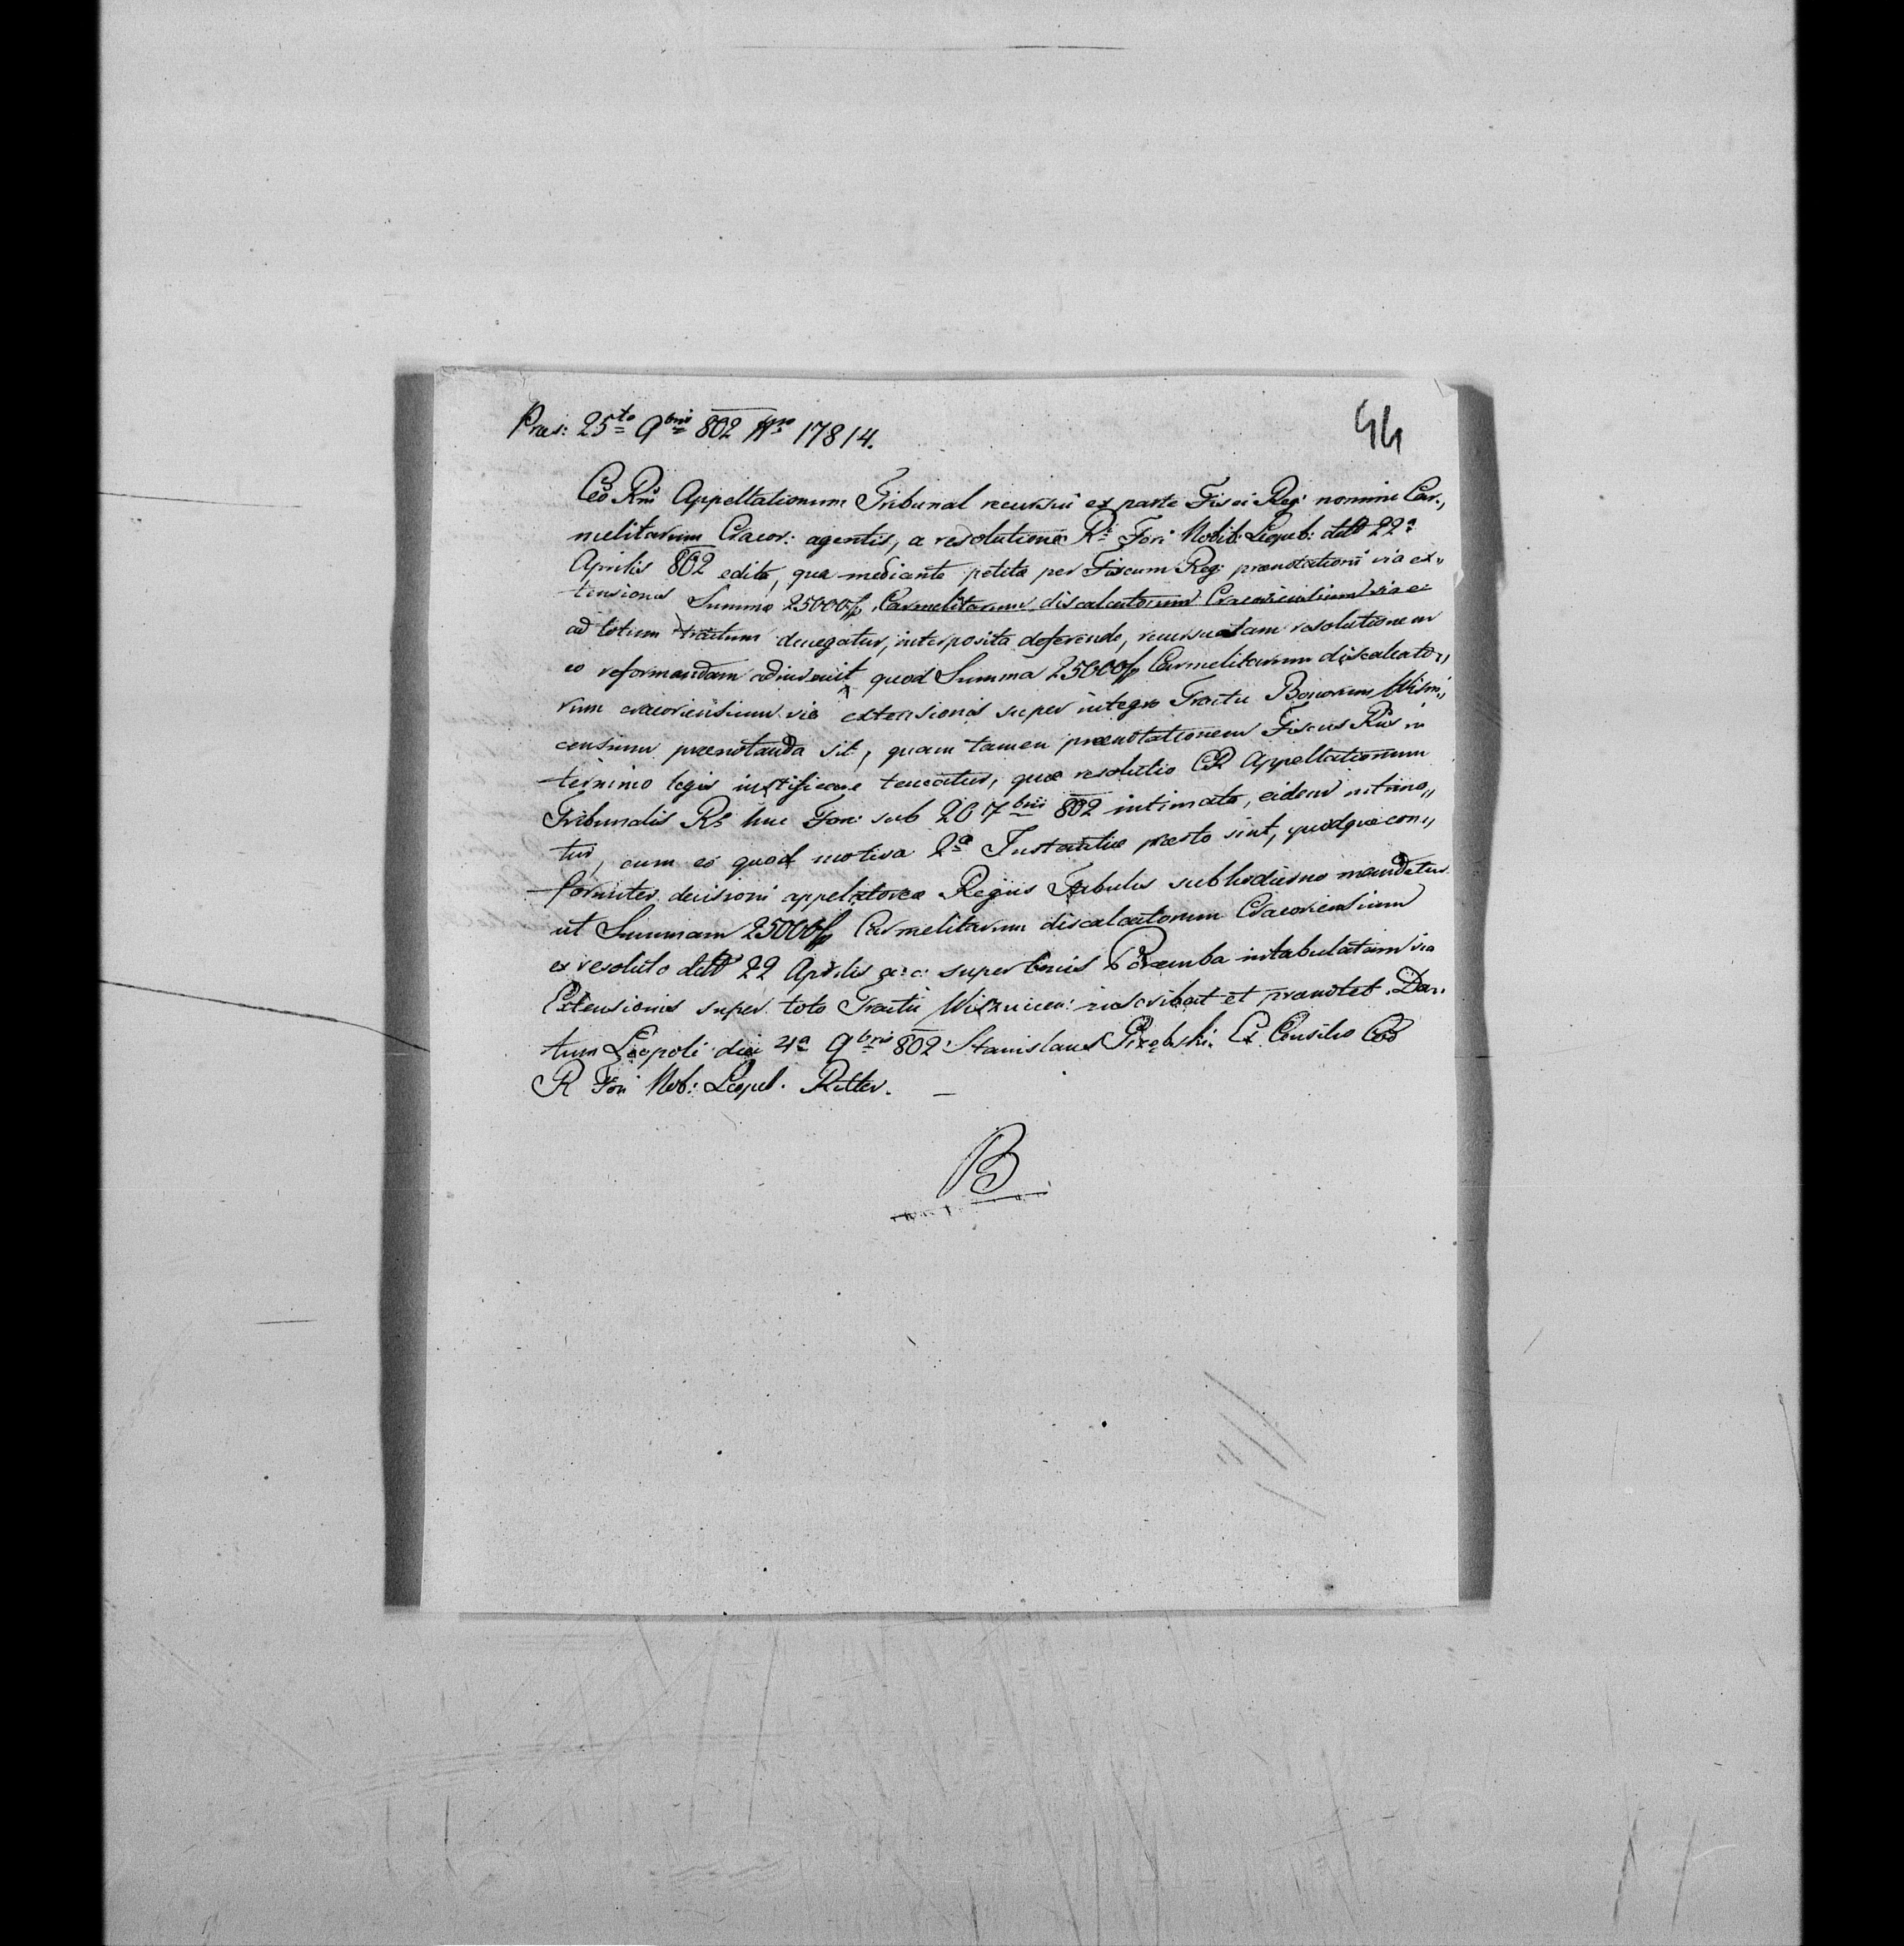 Praes: 25to 9bris 802 Nro 17814.
44
Ceo Rm Appellationum Tribunal recursui ex parte Fisci Regi nomine Car„
melitarum Cracov: agentis, a resolutione Ri Fori Nobil: Leopol: ddto 22a
Aprilis 802 edita, qua mediante petita per Fiscum Reg: praenotationi via ex„
tensionis Summa 25000 fp Carmelitarum discalceatorum Cracoviensium via ei
ad totum tractum denegatur, interposita deferende, recursuatam resolutionem
eo reformandam adinvenit, quod Summa 25000 fp Carmelitarum discalceato„
rum cracoviensium via extensionis super integro Tractu Bonorum Wisni„
censium praenotanda sit, quam tamen praenotationem Fiscus Rius in
termino legis iustificare teneatur, quae resolutio CR Appellationum
Tribunalis Rs huic Foro sub 20 7bris 802 intimata, eidem intimo„
tur, cum eo quod motiva 2a Instantiae praesto sint, quodque con„
formiter decisioni appelatoreae Regiis Tabulis sub hodierno mandetur
ut Summam 25000 fp Carmelitarum discalceatorum Cracoviensium
ex resoluto ddto 22 Aprilis a: c: super bonis Poremba intabulatam via
Extensionis super toto Tractu Wiznicen: inscribat et praenotet. Da„
tum Leopoli die 4a 9bris 802 Stanislaus Ex Consilio Ceo
R Fori Nob: Leopol. Ritter. —
B